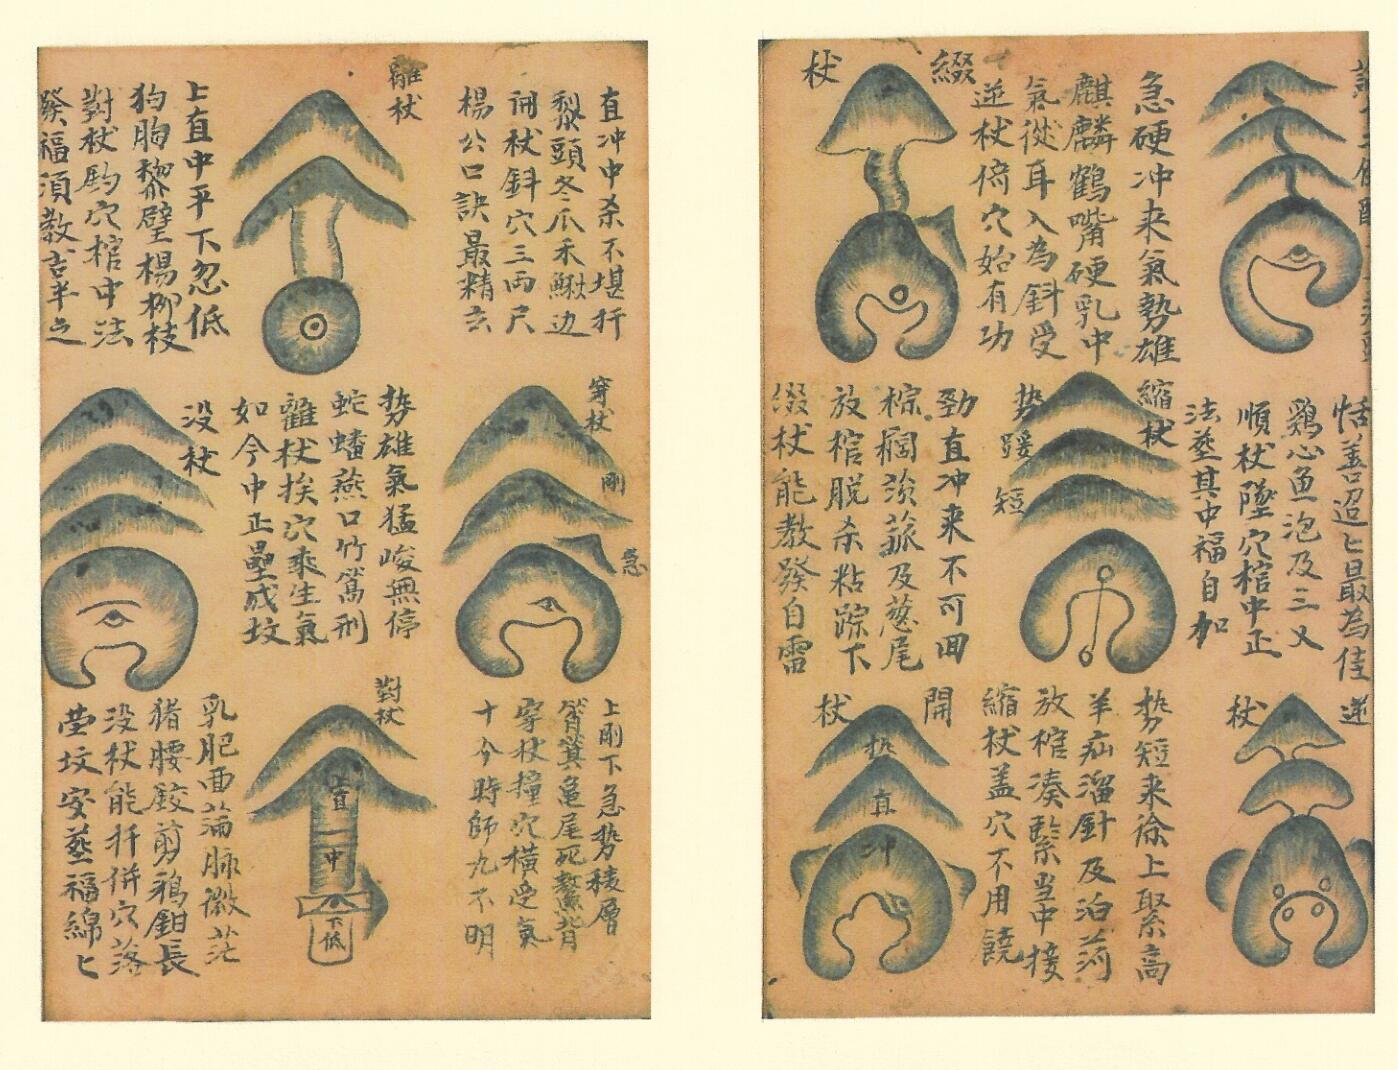 急硬冲来氣勢雄
麒麟鶴嘴硬乳中
氣從耳入為斜受
逆杖倚穴始有功
綴
杖
恬善迢匕最為佳
鷄心魚泡及三乂
順杖墜穴棺中正
法塟其中福自加
縮杖
势踧短
劲直冲来不可回
棕榈茨菰及葱尾
放棺脱杀粘踪下
缀杖能教發自雷
逆
杖
势短来徐上聚高
羊疝溜針及泊
放棺凑緊当中接
縮杖盖穴不用饒
開
杖
直
冲
直冲中杀不堪扦
犁頭冬瓜禾鳅边
開杖斜穴三两尺
楊公口訣最精玄
離杖
上直中平下忽低
狗胸犂壁楊柳枝
對杖釣穴棺中法
發福須教
穿杖
剛
急
势雄氣猛峻無停
蛇蟠燕口竹篙刑
離杖挨穴乘生氣
如今中正壘成坟
没杖
上剛下急势稜層
筲箕龜尾死鰲背
穿杖撞穴横受氣
十今時師九不明
對杖
直
中
下低
乳肥面蕩脉微茫
猪腰鉸剪鴉鉗長
没杖能扦併穴落
茔坟安塟福綿匕